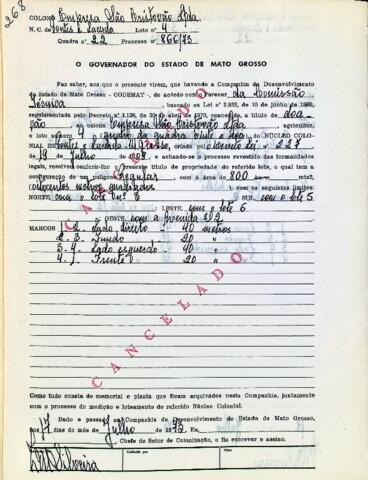 268
COLONO Empresa São Cristovão Ltda
N. C. de Pontes e Lacerda Lote nº 4
Quadra nº 22 Processo nº 866/73
O GOVERNADOR DO ESTADO DE MATO GROSSO
Faz saber, aos que o presente virem, que havendo a Companhia de Desenvolvimento
do Estado de Mato Grosso - CODEMAT -, de acordo com Parecer da Comissão
Técnica, baseado na Lei nº 2.933, de 10 de junho de 1969,
regulamentada pelo Decreto nº 1.138, de 30 de abril de 1970, concedido, a título de doa-
ção ao colono Empresa São Cristovão Ltda agricultor,
o lote nº 4 quatro da Quadra vinte e dois do NÚCLEO COLO-
NIAL DE Pontes e Lacerda M. Grosso, criado o Decreto Lei nº 227
de 19 de Julho de, e achando-se o processo revestido das formalidades
legais, resolveu conferir-lhe o título de propriedade do referido lote, o qual tem a
configuração de um polígono Regular com a área de 800 mts2,
metros quadrados), com os seguintes limites:
NORTE com o lote nº 3 SUL com o lote 5
LESTE com o lote 6
OESTE com a avenida
MARCOS 1-2- Lado direito - 40 metros
2-3- Fundo - 20 "
3-4- Lado esquerdo - 40 "
4-1- Frente - 20 "
CANCELADO
CANCELADO
Como tudo consta do memorial e planta que ficam arquivados nesta Companhia, juntamente
com o processo de medição e loteamento do referido Núcleo Colonial.
Dado e passado na Companhia de Desenvolvimento do Estado de Mato Grosso,
aos 17 dias do mês de Julho de 1973. Eu,
Chefe do Setor de Colonização, o fiz escrever e assino.
Silveira
Conferido por
Visto